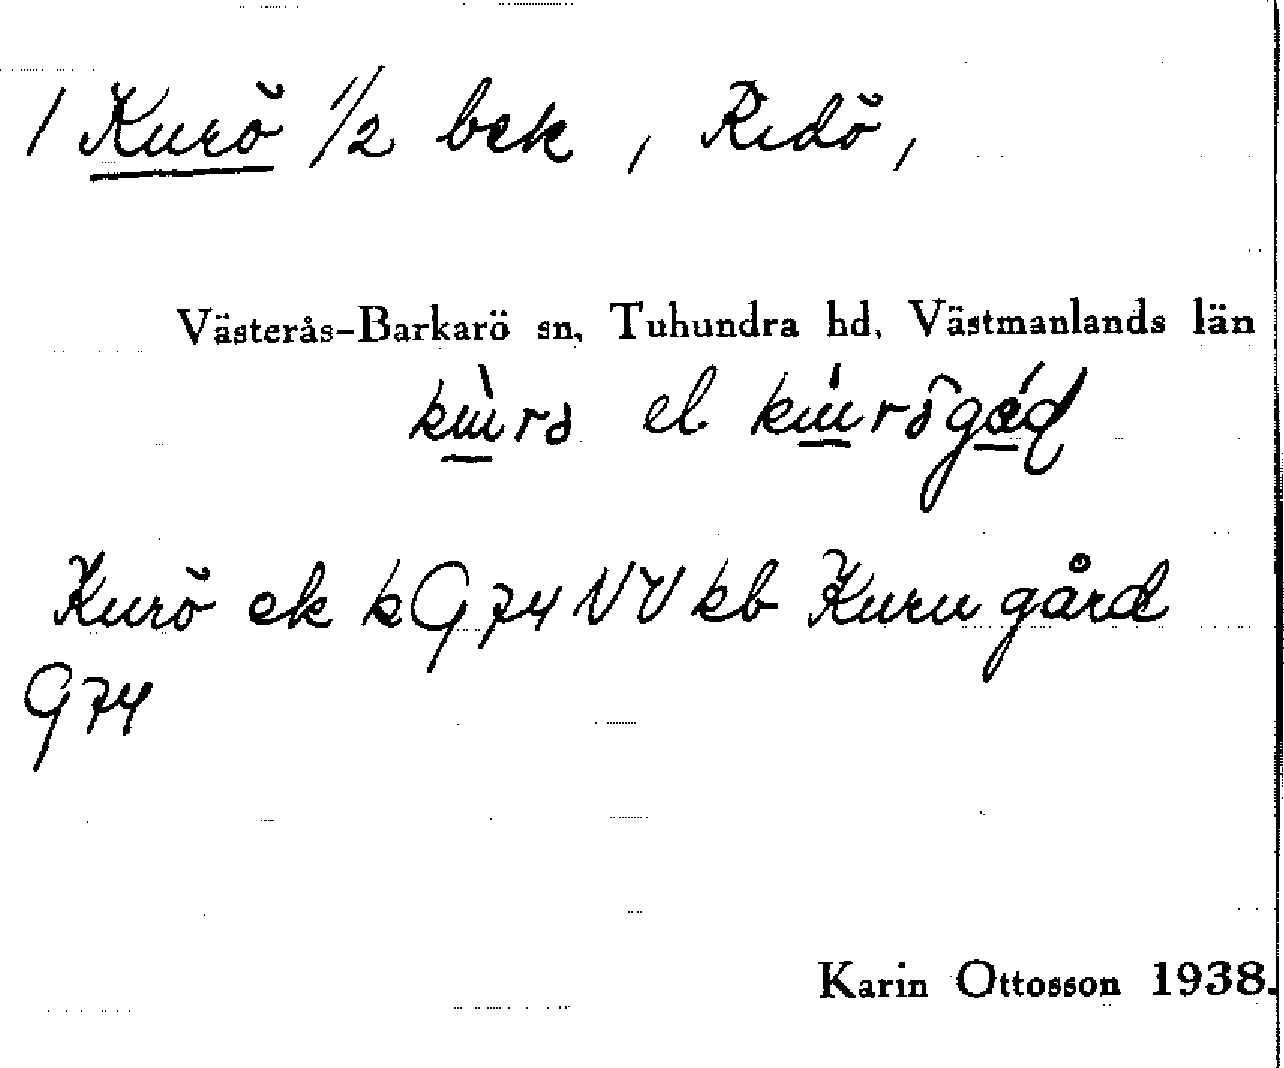 1 Kurö 1/2 bek , Ridö,
Västerås-Barkarö sn, Tuhundra hd, Västmanlands län
el
Kurö ek k G 74 NV kb Kuru gård
G 74
Karin Ottosson 1938.